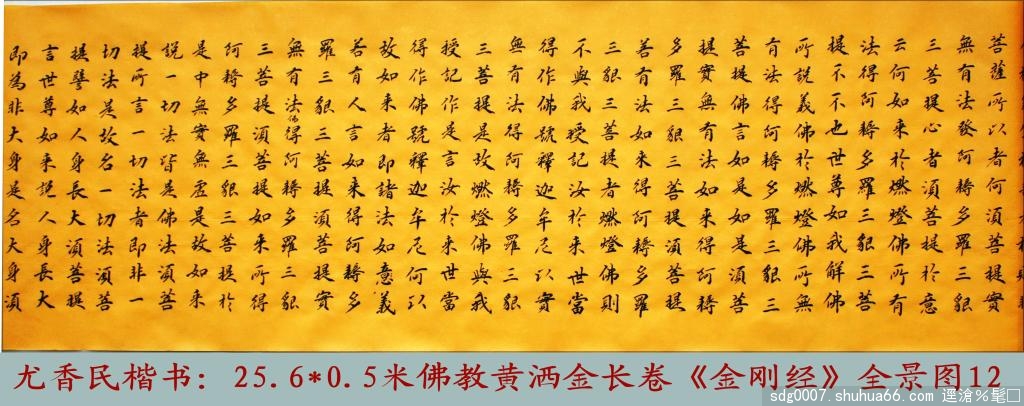 菩薩所以者何須菩提實
無有法發阿耨多羅三藐
三菩提心者須菩提於意
云何如來於燃燈佛所有
法得阿耨多羅三藐三菩
提不不也世尊如我解佛
所說義佛於燃燈佛所無
有法得阿耨多羅三藐三
菩提佛言如是如是須菩
提實無有法如來得阿耨
多羅三藐三菩提須菩提
若有法如來得阿耨多羅
三藐三菩提者燃燈佛則
不與我授記汝於來世當
得作佛號釋迦牟尼以實
無有法得阿耨多羅三藐
三菩提是故燃燈佛與我
授記作是言汝於來世當
得作佛號釋迦牟尼何以
故如來者即諸法如意義
若有人言如來得阿耨多
羅三藐三菩提須菩提實
無有法佛得阿耨多羅三藐
三菩提須菩提如來所得
阿耨多羅三藐三菩提於
是中無實無虛是故如來
說一切法皆是佛法須菩
提所言一切法者即非一
切法是故名一切法須菩
提譬如人身長大須菩提
言世尊如來說人身長大
即為非大身是名大身須
尤香民楷书：25.6*0.5米佛教黄洒金长卷《金刚经》全景图12
sdg0007.shuhua66.com